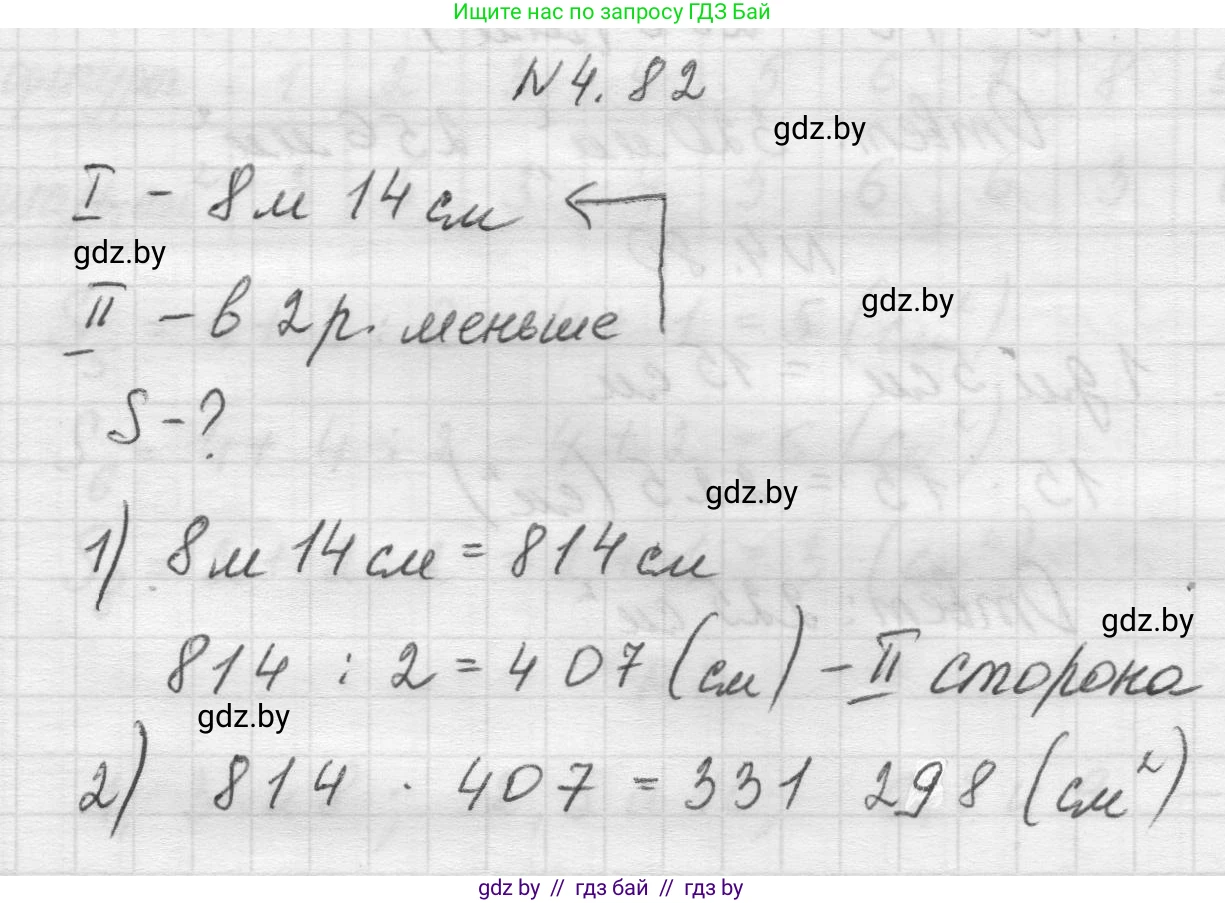 Ищите нас по запросу ГДЗ Бай
N 4. 82
gdz.by
I - 8 м 14 см
gdz.by
II - в 2 р. меньше
gdz.by
S - ?
gdz.by
1) 8 м 14 см = 814 см
gdz.by
814 : 2 = 407 (см) - II сторона
gdz.by
2) 814 · 407 = 331 298 (см²)
gdz.by // гдз бай // gdz.by